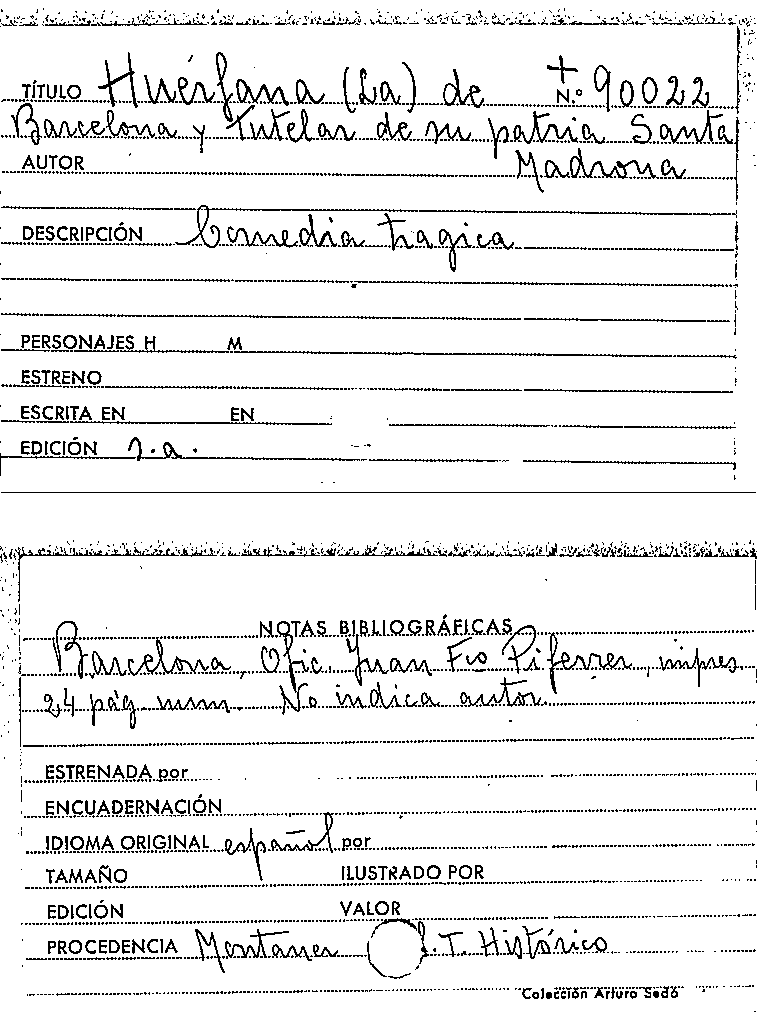 TÍTULO Huérfana (La) de + N.º 90022
Barcelona y tutelar de su patria Santa
AUTOR Madrona
DESCRIPCIÓN Comedia tragica
PERSONAJES H M
ESTRENO
ESCRITA EN EN
EDICIÓN s.a.
NOTAS BIBLIOGRÁFICAS
Barcelona, Ofic. Juan Fco Piferrer, impres.
24 pág num. No indica autor
ESTRENADA por
ENCUADERNACIÓN
IDIOMA ORIGINAL español por
TAMAÑO ILUSTRADO POR
EDICIÓN VALOR
PROCEDENCIA Montaner T. Histórico
Colección Arturo Sedó